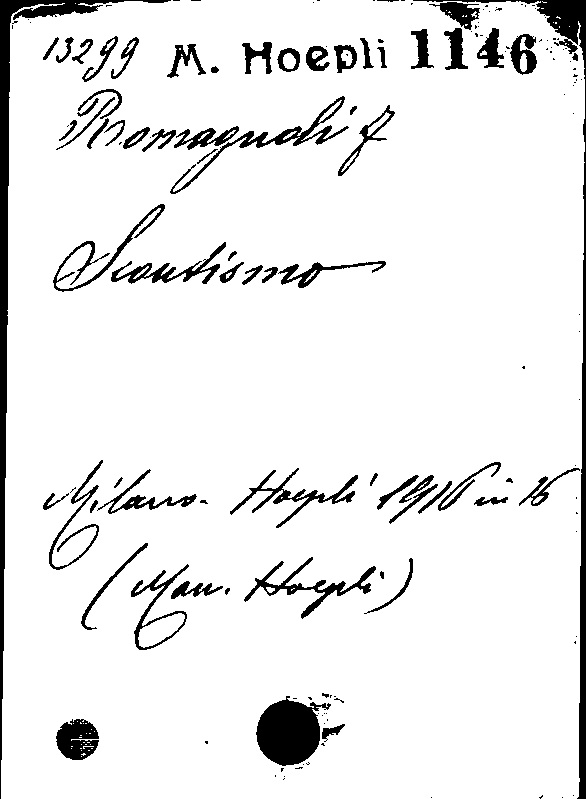 13299 M. Hoepli 1146
Romagnoli F
Scoutismo
Milano. Hoepli 1916 in 16
(Man. Hoepli)